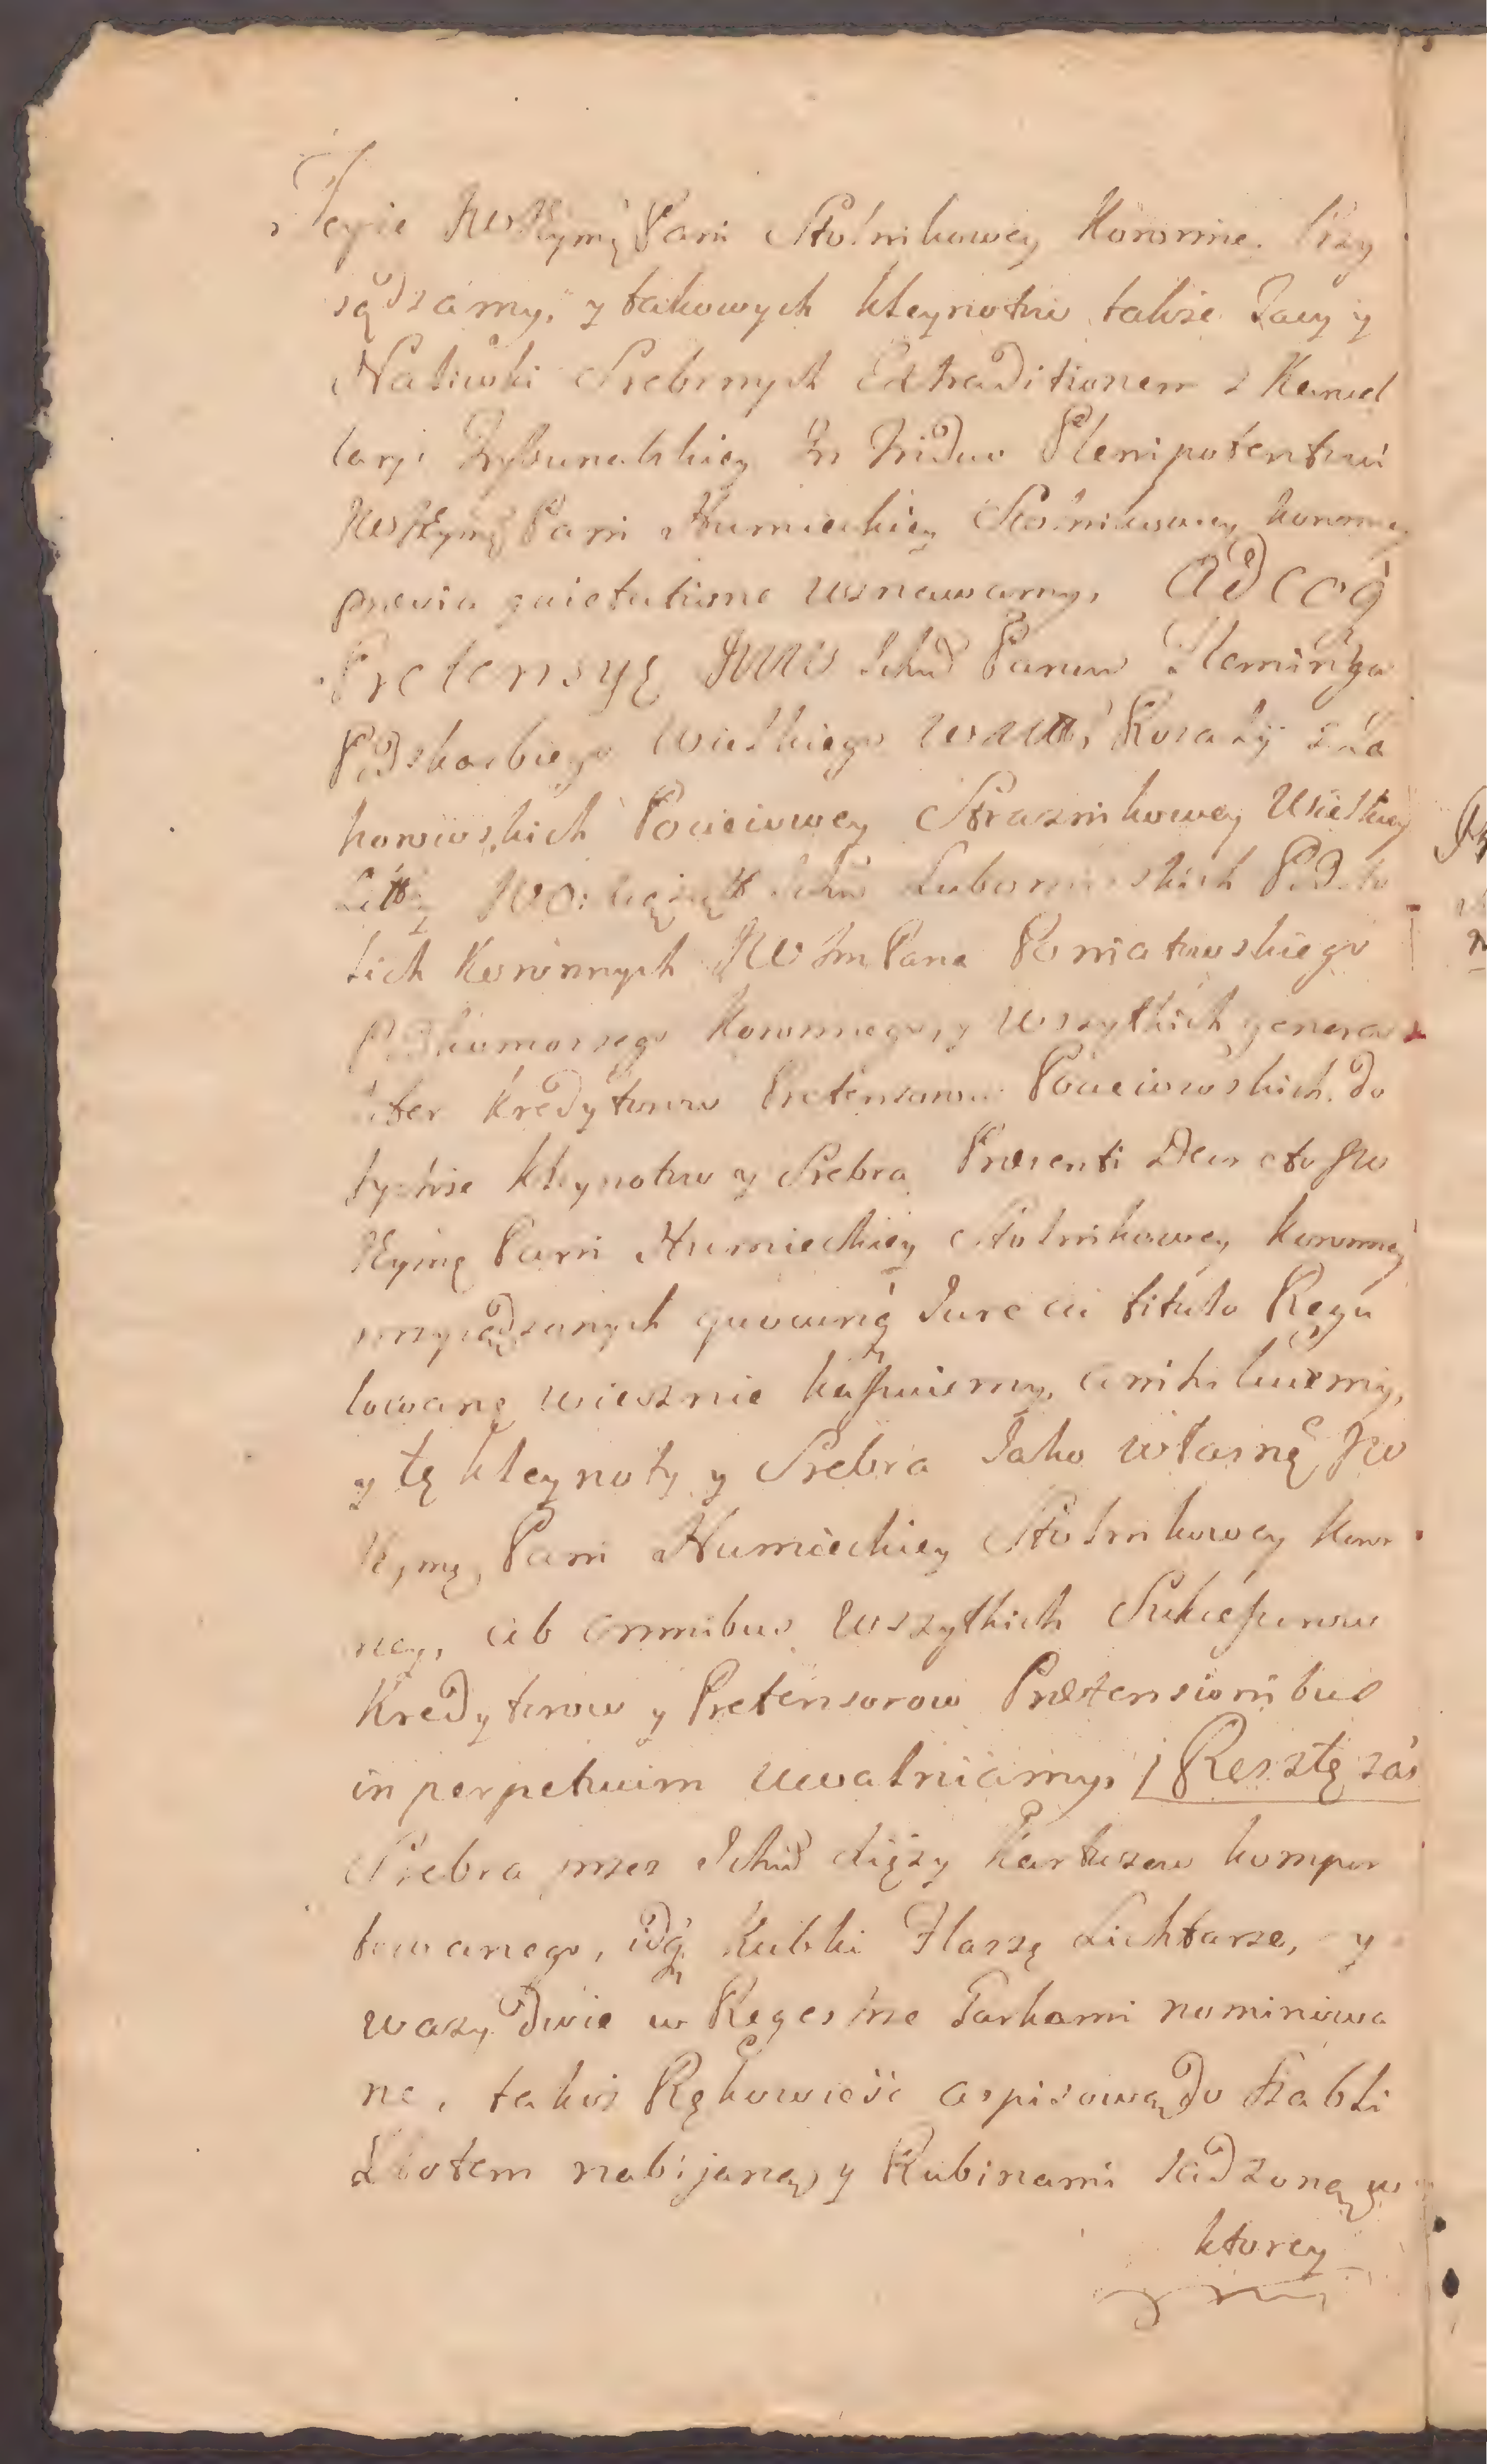 cyie JWJeymę Pani Stolnikowey Koronne. Przy
sądzamy, y takowych kleynotow także Tacy y
Naliwki Srebrnych Extraditionem z Kancel
laryi Trybunalskiey In Triduo Plenipotentowi
JWJeymę Pani Humieckiey Stolnikowey koronney
previa quietatione uznawamy, Adcoq
Pretensyę JWW Ichm̃ Panow Fleminga
Podskarbiego Wielkiego WXLitt, Rozalÿ z Za
horowskich Pocieiowey Straznikowey Wielkiey
Litty JWO: Ichm̃ Lubomirskich Podsto
lich Koronnych JW Jm Pana Poniatowskiego
Podkomorzego Koronnego, y wszytkich genera
liter Kredytorow Pretensorow Pocieiowskich do
tychże kleynotow y Srebra Præsenti Decreto JW
Jeymę Pani Humieckiey Stolnikowey koronney
przysądzanych quovunq Jure ac titulo Regu
lowanę wiecznie kassuiemy, anihiluiemy,
y tę kleynoty y Srebra Jako własnę JW
Jeymę Pani Humieckiey Stolnikowey Koron
ney, ab omnibus wszytkich Sukcessorow
Kredytorow y Pretensorow Prætensionibus
in perpetuum uwalniamy, / Resztę zaś
Srebra przez Ichm̃ xięzy Kartuzow kompor
towanego, idq Kubki Flaszę Lichtarze, y
wazy dwie w Regestrze Parkami nominowa
ne, takoż Rękowieść aspisową do szabli
Złotem nabijaną, y Rubinami sadzoną w
ktorey